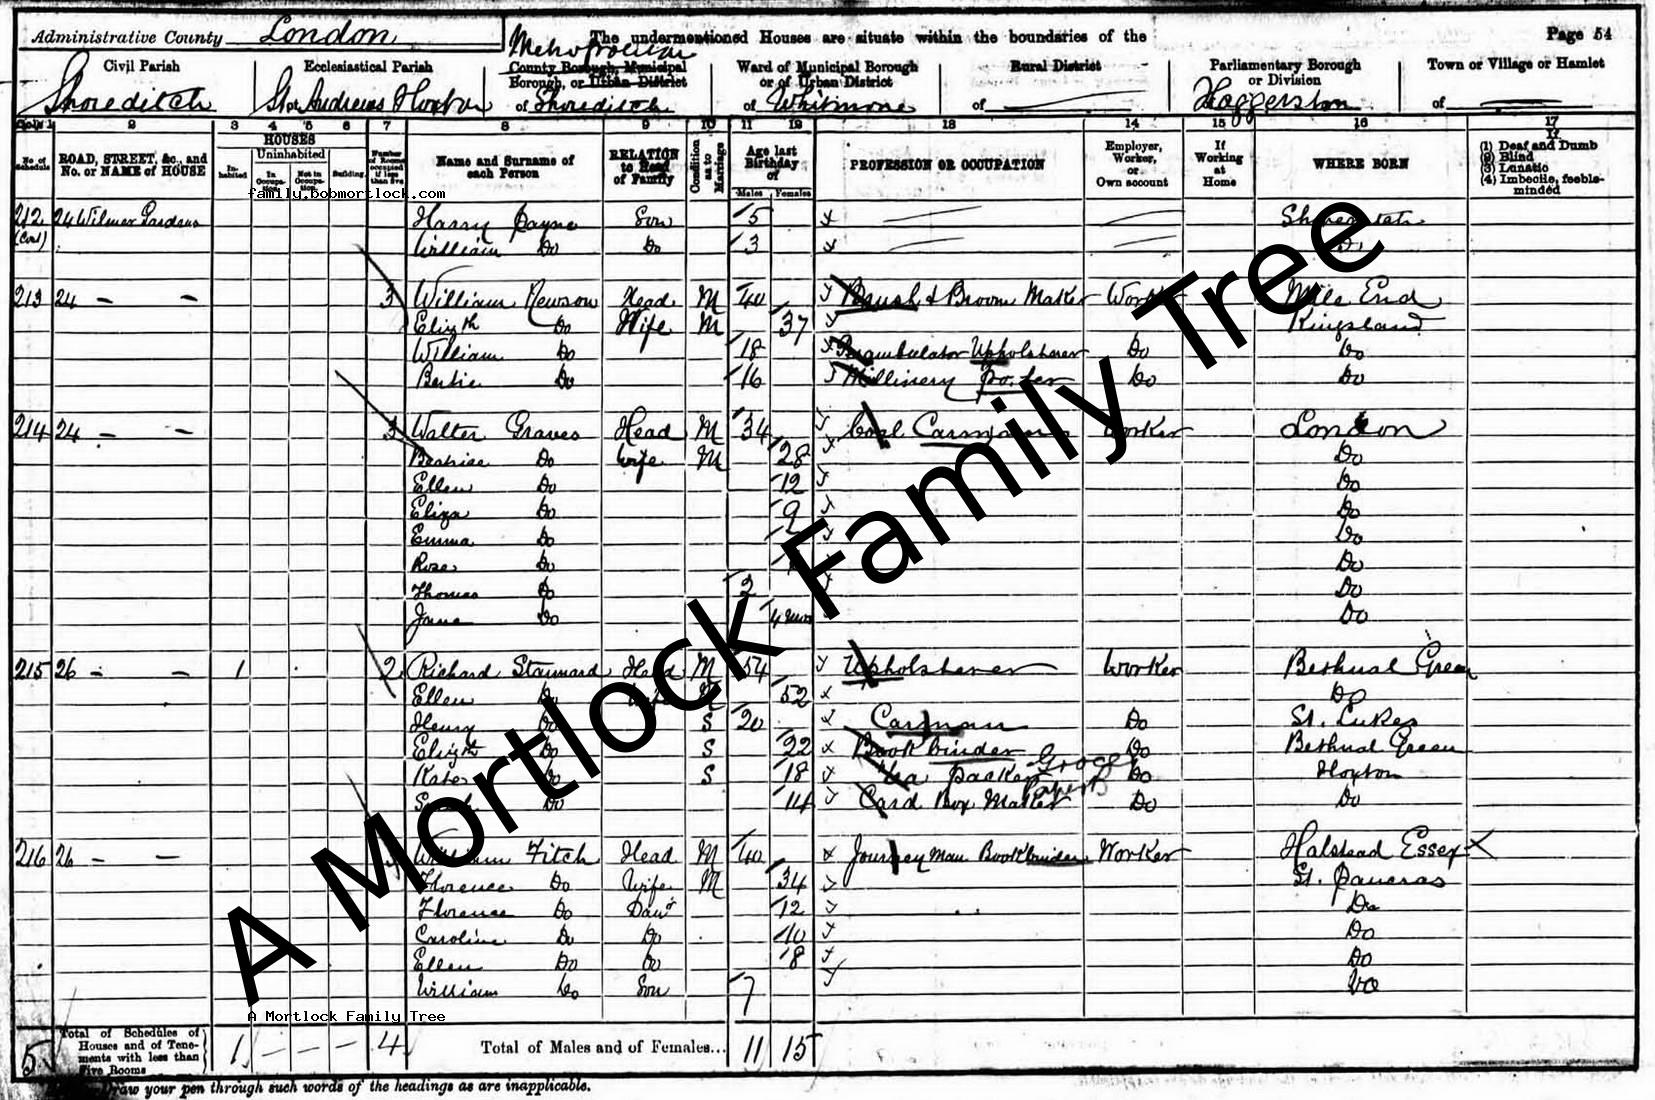 Administrative County London
The undermentioned Houses are situate within the boundaries of the
Page 54
Civil Parish
Shoreditch
Ecclesiastical Parish
St Andrews Hoxton
Metropolitan
County Borough, Municipal
Borough, or Urban District
of Shoreditch
Ward of Municipal Borough
or of Urban District
of Whitmore
Rural District
of
Parliamentary Borough
or Division
Haggerston
Town or Village or Hamlet
of
2 3 4 5 6 7 8 9 10 11 12 13 14 15 16 17
No. of Schedule
ROAD, STREET, &c., and
No. or NAME of HOUSE
HOUSES
In-habited
Uninhabited
In Occupa-tion
Not in Occupa-tion
Building
Number of Rooms occupied if less than five
Name and Surname of
each Person
RELATION
to Head
of Family
Condition as to Marriage
Age last
Birthday
of
Males Females
PROFESSION OR OCCUPATION
Employer,
Worker,
or
Own account
If
Working
at
Home
WHERE BORN
If
(1) Deaf and Dumb
(2) Blind
(3) Lunatic
(4) Imbecile, feeble-
minded
family.bobmortlock.com
212 24 Wilmer Gardens Harry Payne Son 5
William Do Do 3
213 24 — — 3 William Newson Head M 40 Brush & Broom Maker Worker Mile End
Elizth Do Wife M 37 Kingsland
William Do 18 Perambulator Upholsterer Do Do
Bertie Do 16 Millinery Do Do
214 24 — — 3 Walter Graves Head M 34 Coal Carman Worker London
Beatrice Do Wife M 28 Do
Ellen Do 12 Do
Eliza Do 9 Do
Emma Do Do
Rose Do Do
Thomas Do 2 Do
Jane Do 4 mos Do
215 26 — — 1 2 Richard Stannard Head M 54 Upholsterer Worker Bethnal Green
Ellen Do Wife M 52 Do
Henry Do S 20 Carman Do St. Lukes
Elizth Do S 22 Book binder Do Bethnal Green
Kate Do S 18 Tea packer Grocer Do Hoxton
Do 14 Card Box Maker Paper Do Do
216 26 — — William Fitch Head M 40 Journeyman Bookbinder Worker Halstead Essex
Florence Do Wife M 34 St. Pancras
Florence Do Daur 12 Do
Caroline Do Do 10 Do
Ellen Do Do 8 Do
William Do Son 7 Do
A Mortlock Family Tree
A Mortlock Family Tree
5 Total of Schedules of
Houses and of Tene-
ments with less than
Five Rooms
1 — — — 4 Total of Males and of Females... 11 15
Draw your pen through such words of the headings as are inapplicable.